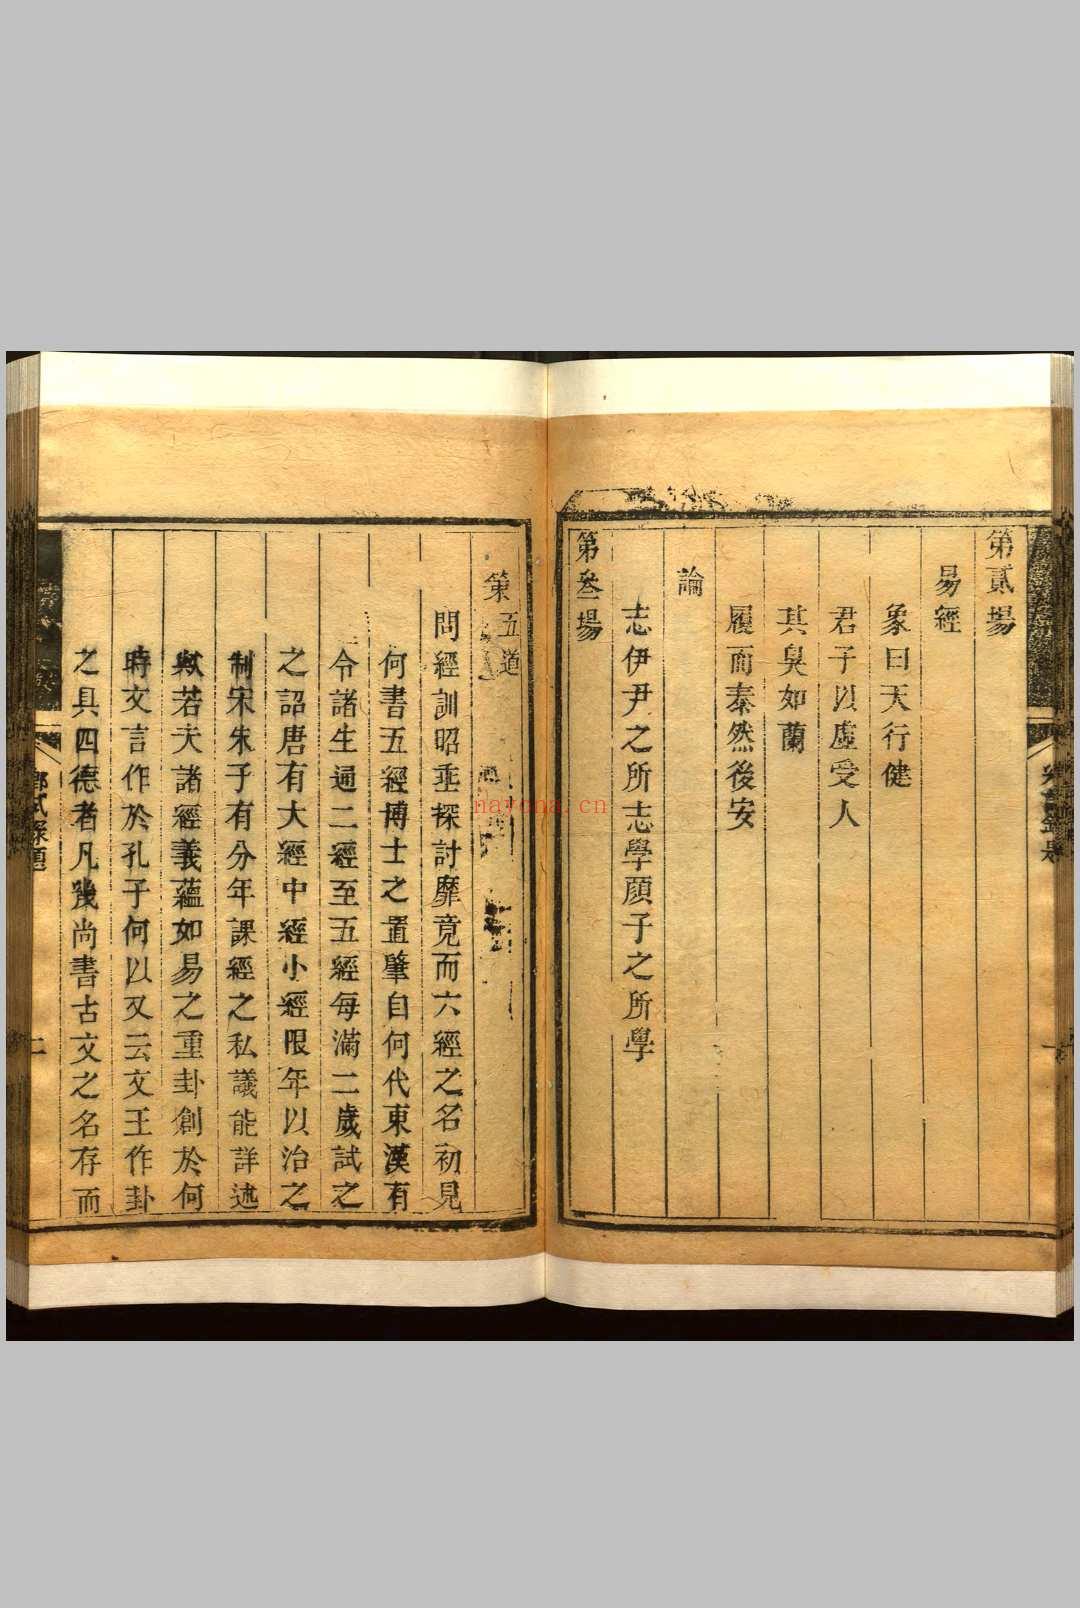 第貳場
易經
象曰天行健
君子以虛受人
其臭如蘭
履而泰然後安
論
志伊尹之所志學顔子之所學
第叄場
策五道
問經訓昭垂探討靡竟而六經之名初見
何書五經博士之置肇自何代東漢有
令諸生通二經至五經每滿二歲試之
之詔唐有大經中經小經限年以治之
制宋朱子有分年課經之私議能詳述
歟若夫諸經義蘊如易之重卦創於何
時文言作於孔子何以又云文王作卦
之具四德者凡幾尚書古文之名存而
鄉試錄題
nayona.cn